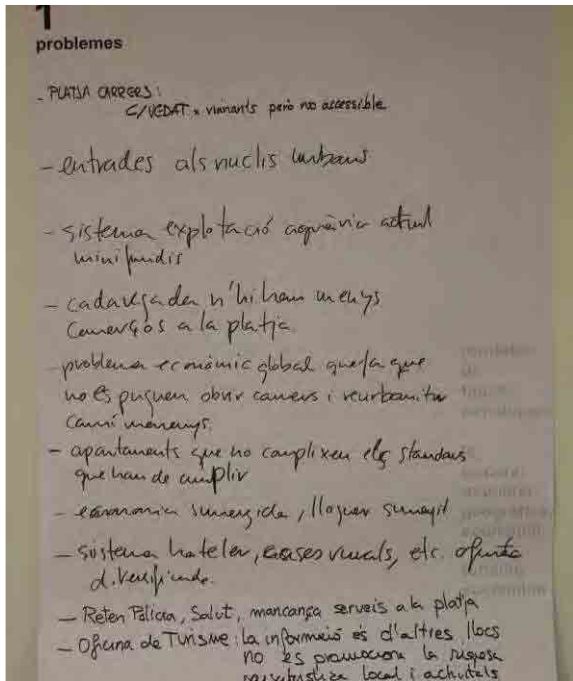 1
problemes
- PLATJA CARRERS:
C/VEDAT x vianants però no accessible
- entrades als nuclis urbans
- sistema explotació agrària actual
minifundis
- cada vegada n'hi han menys
comerços a la platja
- problema econòmic global que fa que
no es puguen obrir carrers i reurbanitzar
- apartaments que no complixen els standars
que han de cumplir
- economia sumergida, lloguer sumergit
- sistema hoteler, cases rurals, etc. oferta
diversificada.
- Reten Policia, Salut, mancança serveis a la platja
- Oficina de Turisme: la informació és d'altres llocs
no es promociona la riquesa
local i activitats